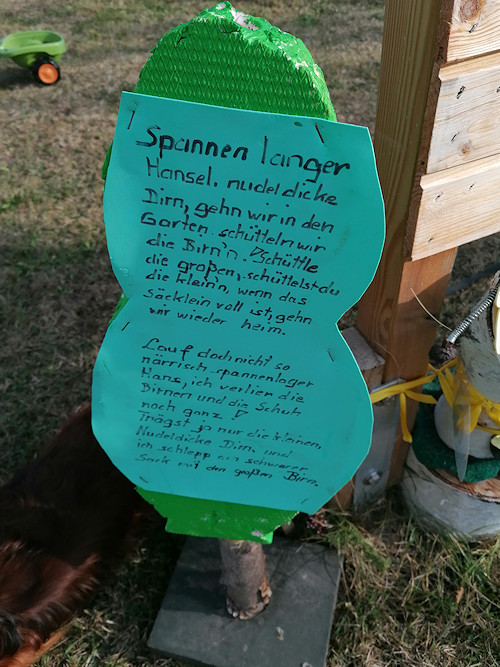 Spannen langer
Hansel, nudeldicke
Dirn, gehn wir in den
Garten schütteln wir
die Birn'n. Schüttle
die großen, schüttelst du
die klein'n, wenn das
Säcklein voll ist, gehn
wir wieder heim.
Lauf doch nicht so
närrisch spannenlager
Hans, ich verlier die
Birnen und die Schuh
noch ganz!
Trägst ja nur die kleinen,
Nudeldicke Dirn, und
ich schlepp ein schwerer
Sack mit den großen Birn.